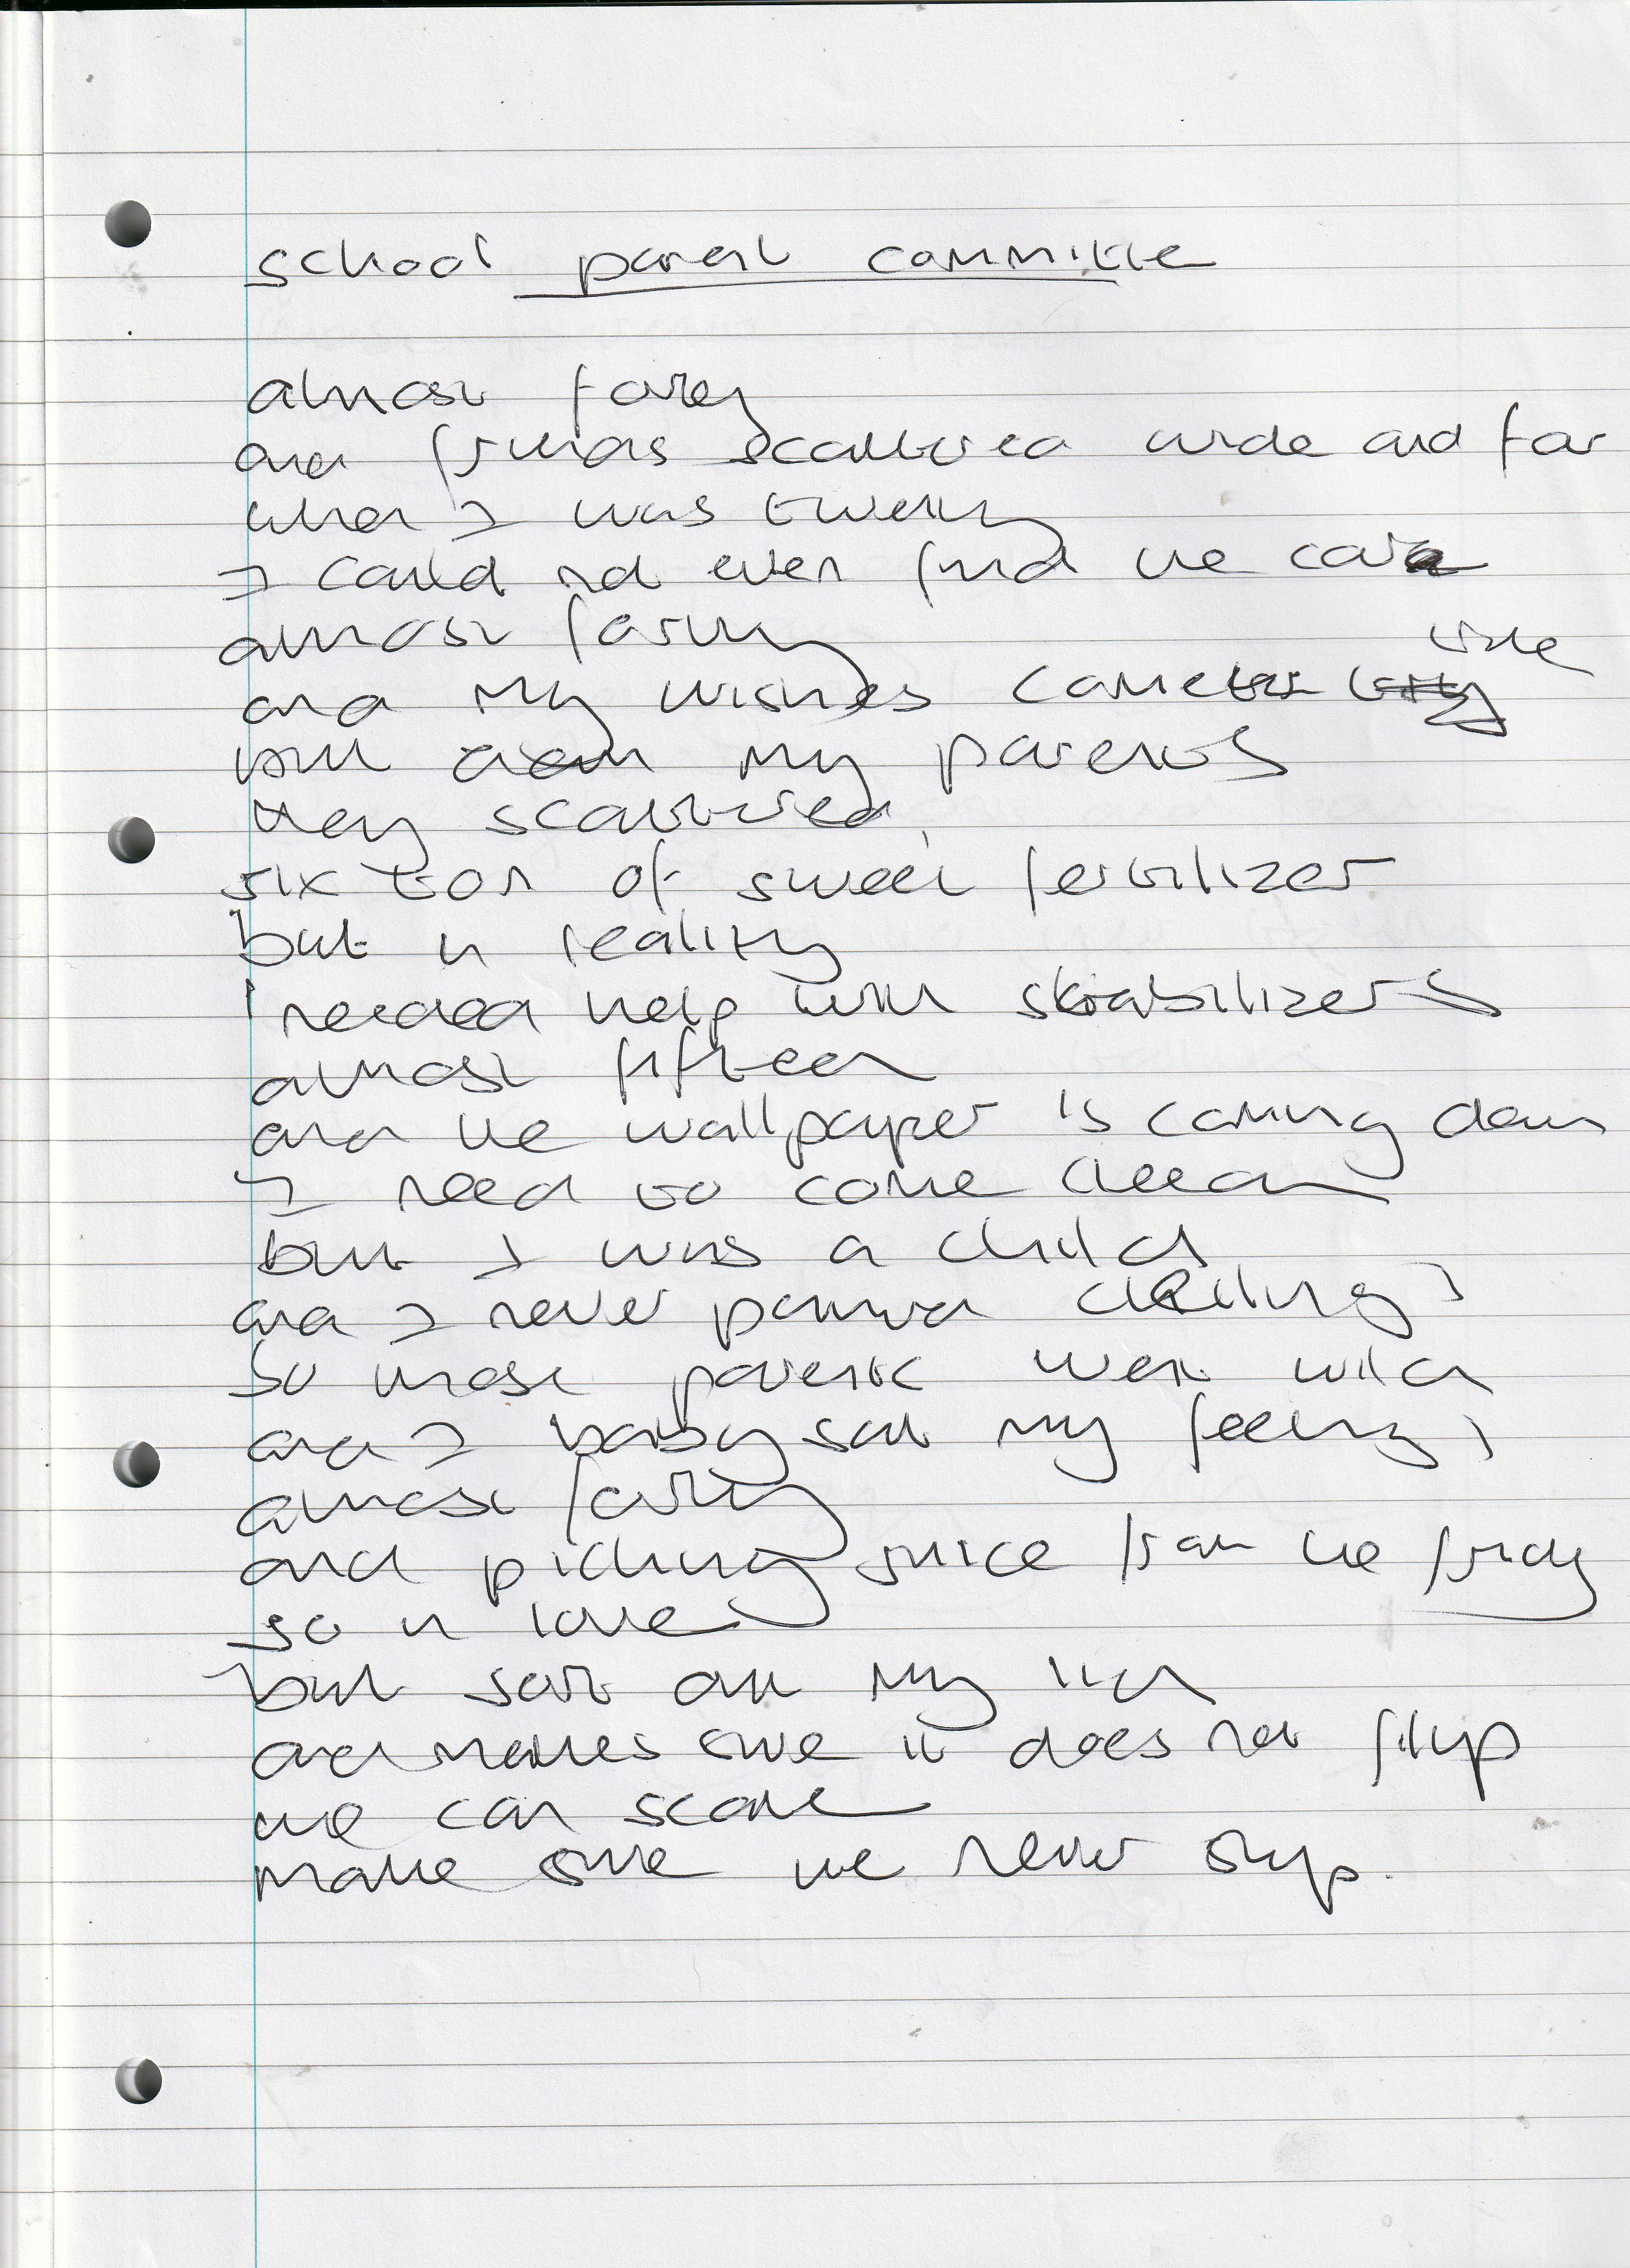 school parent committee
almost forty
and friends scattered wide and far
when I was twenty
I could not even find the car
almost forty
true
and my wishes come
but my parents
they scattered
six ton of sweet fertilizer
but in reality
I needed help with stabilizers
almost fifteen
and the wallpaper is coming down
I need to come clean
but I was a child
and I never painted ceilings
so most parents went wild
and I babysat my feelings
almost forty
and picking juice from the fridge
so in love
but sat on my lid
and makes sure it does not flip
we can score
make sure we never slip.